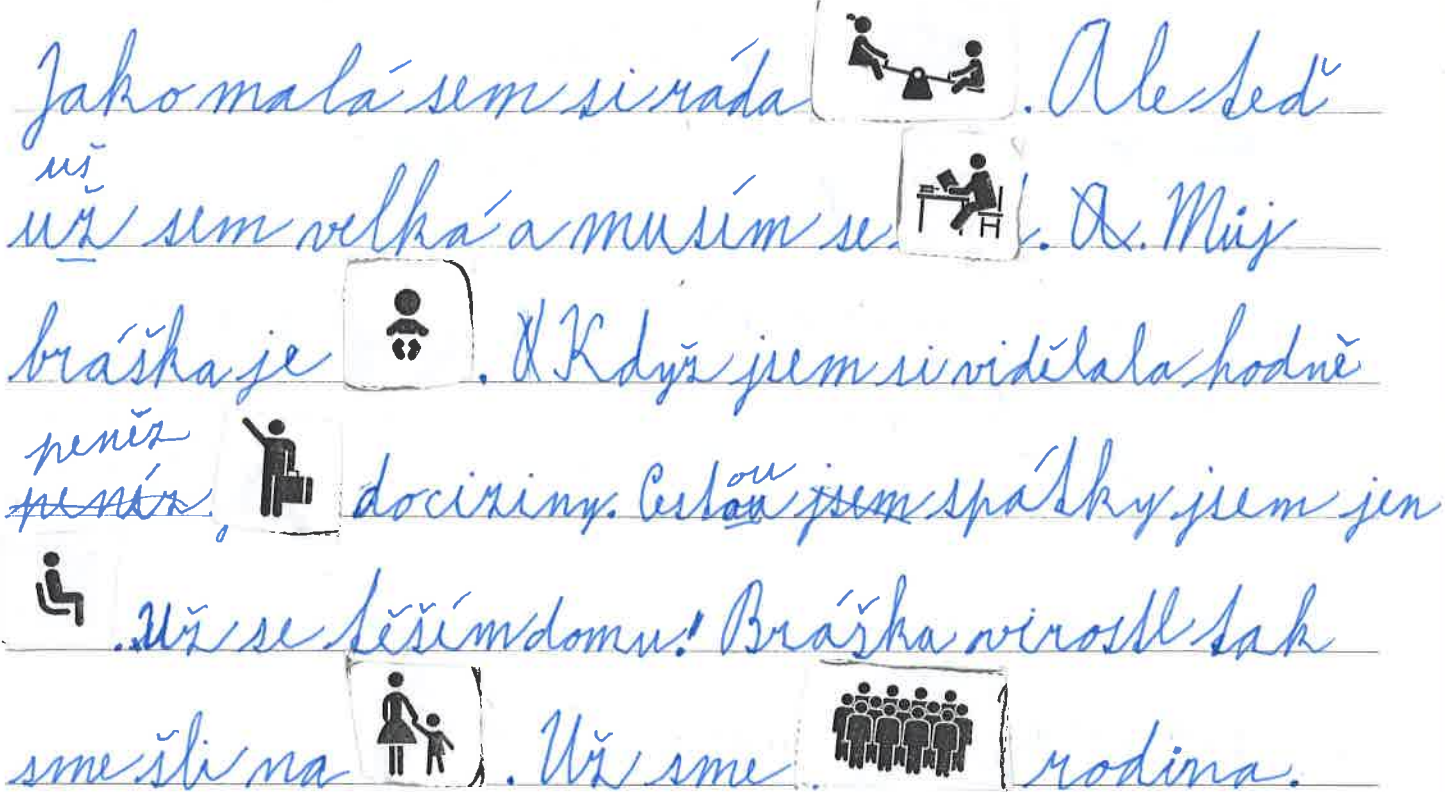 Jako malá sem si ráda . Ale teď
uš
už sem velká a musím se . A. Můj
bráška je . A Když jsem si vidělala hodně
peněz
penéz do ciziny. Cestou ou jsem spátky jsem jen
. Už se těším domu! Bráška virostl tak
sme šli na . Už sme rodina.